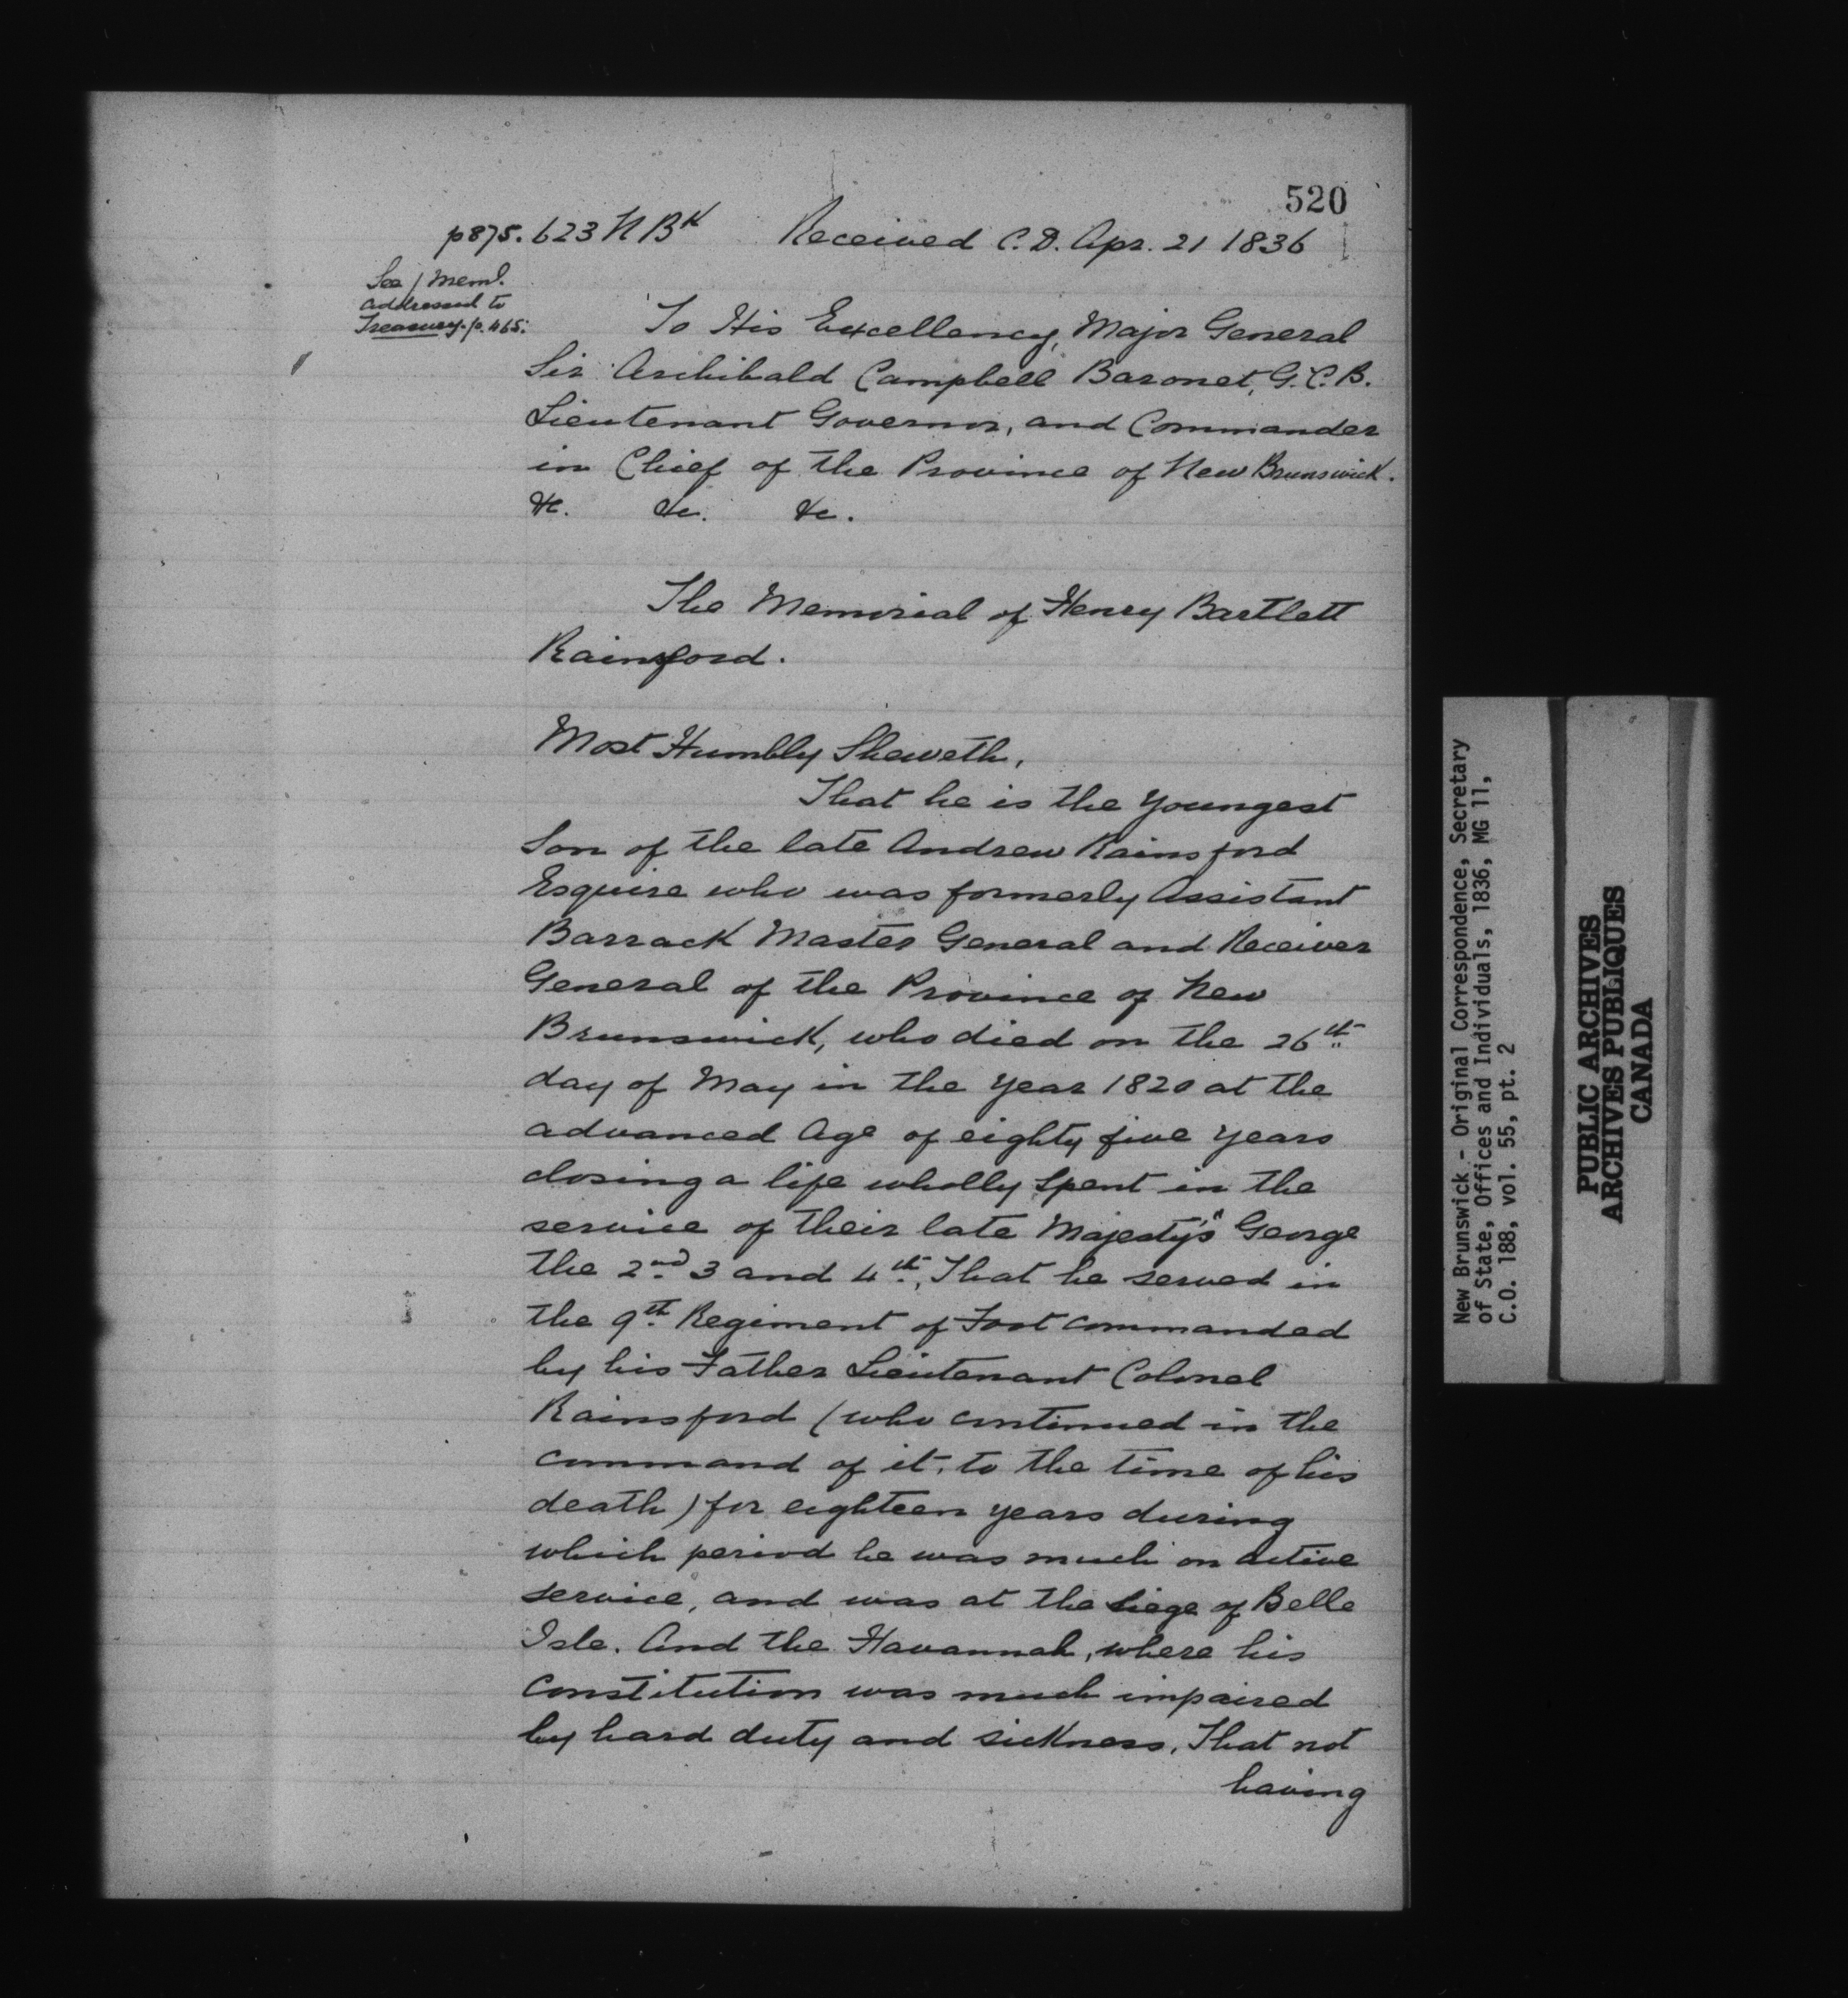 520
p875. 623 N Bk Received C.D. Apr. 21 1836
See / Meml.
addressed to
Treasury. p. 465.
To His Excellency, Major General
Sir Archibald Campbell Baronet, G.C.B.
Lieutenant Governor, and Commander
in Chief of the Province of New Brunswick.
&c. &c. &c.
The Memorial of Henry Bartlett
Rainsford.
Most Humbly Sheweth,
That he is the Youngest
Son of the late Andrew Rainsford
Esquire who was formerly Assistant
Barrack Master General and Receiver
General of the Province of New
Brunswick, who died on the 26th
day of May in the Year 1820 at the
advanced Age of eighty five Years
closing a life wholly Spent in the
service of their late Majesty's" George
the 2nd 3 and 4th, That he served in
the 9th Regiment of Foot commanded
by his Father Lieutenant Colonel
Rainsford (who continued in the
command of it, to the time of his
death) for eighteen years during
which period he was much on active
service, and was at the Siege of Belle
Isle. And the Havannah, where his
constitution was much impaired
by hard duty and sickness, That not
having
New Brunswick - Original Correspondence, Secretary
of State, Offices and Individuals, 1836, MG 11,
C.O. 188, vol. 55, pt. 2
PUBLIC ARCHIVES
ARCHIVES PUBLIQUES
CANADA